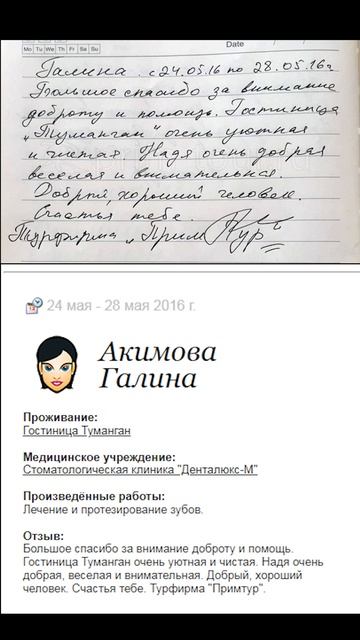 Mo Tu We Th Fr Sa Su
Date
Галина с 24.05.16 по 28.05.16г
Большое спасибо за внимание
доброту и помощь. Гостиница
„Туманган" очень уютная
и чистая. Надя очень добрая
веселая и внимательная.
Добрый, хороший человек.
Счастья тебе.
Турфирма „Прим Тур"
24 мая - 28 мая 2016 г.
Акимова
Галина
Проживание:
Гостиница Туманган
Медицинское учреждение:
Стоматологическая клиника "Денталюкс-М"
Произведённые работы:
Лечение и протезирование зубов.
Отзыв:
Большое спасибо за внимание доброту и помощь.
Гостиница Туманган очень уютная и чистая. Надя очень
добрая, веселая и внимательная. Добрый, хороший
человек. Счастья тебе. Турфирма "Примтур".